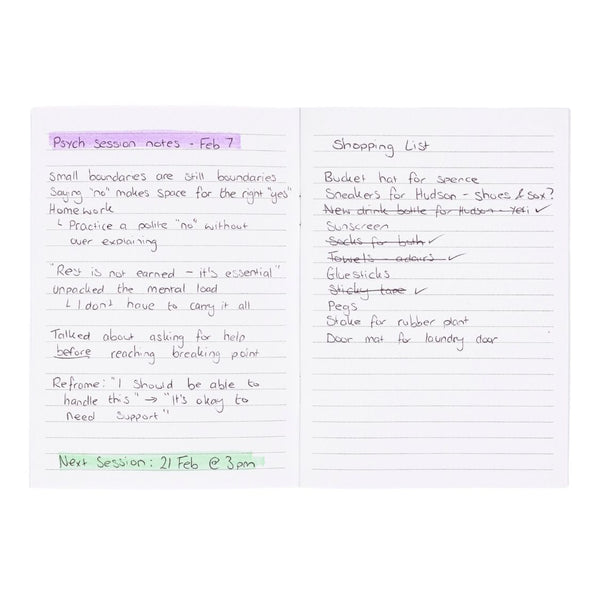 Psych session notes - Feb 7
Small boundaries are still boundaries
Saying "no" makes space for the right "yes"
Homework
Practice a polite "no" without
over explaining
"Rest is not earned - it's essential"
Unpacked the mental load
I don't have to carry it all
Talked about asking for help
before reaching breaking point
Reframe: "I should be able to
handle this" → "It's okay to
need support"
Next Session: 21 Feb @ 3pm
Shopping List
Bucket hat for spence
Sneakers for Hudson - shoes & sox?
New drink bottle for Hudson - Yeti ✓
Sunscreen
Socks for both ✓
Towels - adairs ✓
Gluesticks
Sticky tape ✓
Pegs
Stake for rubber plant
Door mat for laundry door